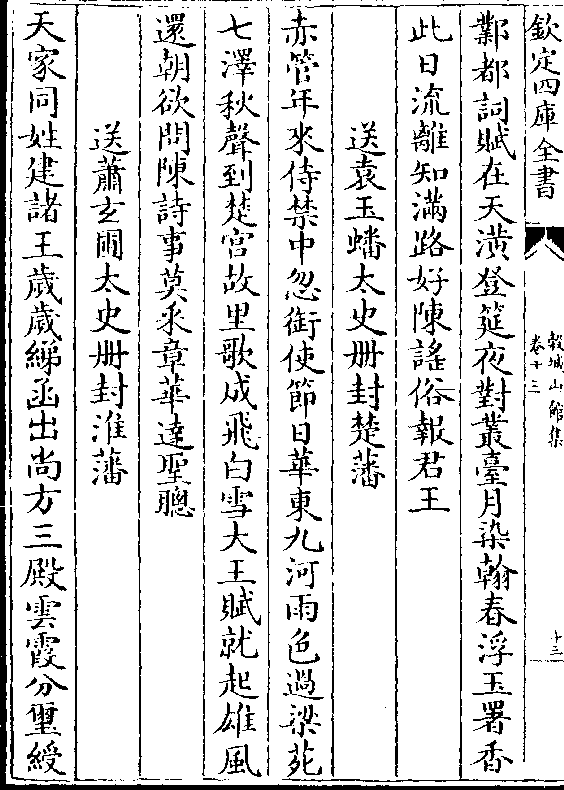 欽定四庫全書
穀城山館集
卷十三
十三
鄴都詞賦在天潢登筵夜對叢臺月染翰春浮玉署香
此日流離知滿路好陳謠俗報君王
送袁玉蟠太史册封楚藩
赤管年來侍禁中忽銜使節日華東九河雨色過梁苑
七澤秋聲到楚宫故里歌成飛白雪大王賦就起雄風
還朝欲問陳詩事莫采章華達聖聰
送蕭玄圃太史册封淮藩
天家同姓建諸王歲歲綈函出尚方三殿雲霞分璽綬